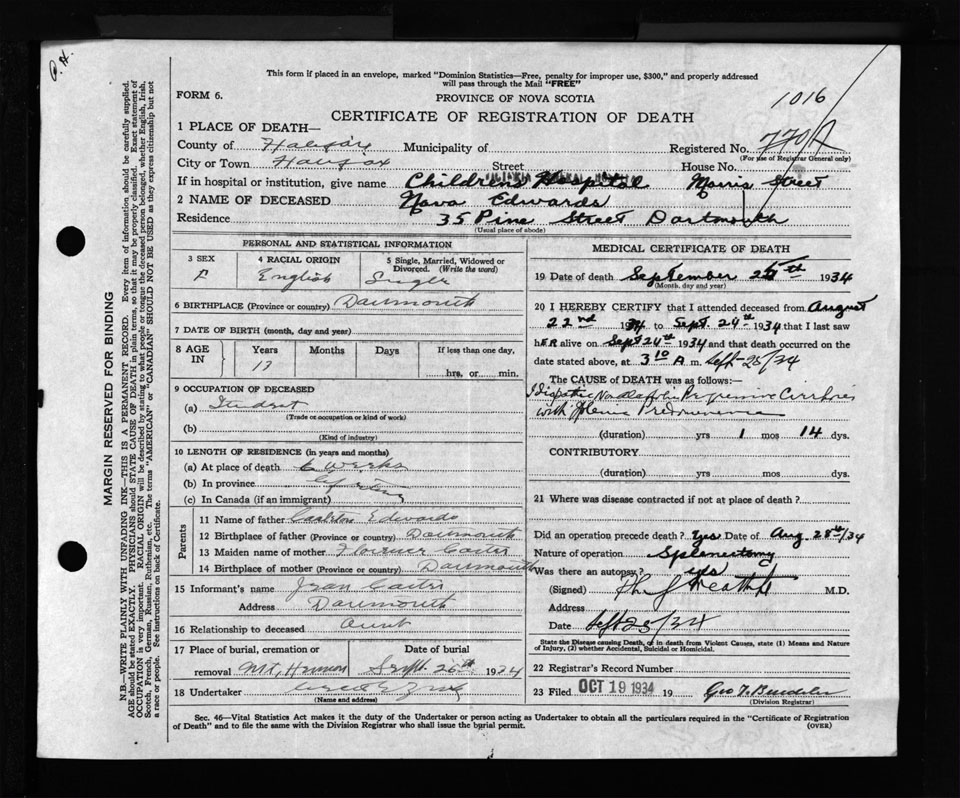 P. H.
This form if placed in an envelope, marked "Dominion Statistics—Free, penalty for improper use, $300," and properly addressed
will pass through the Mail "FREE"
FORM 6.
PROVINCE OF NOVA SCOTIA
1016
CERTIFICATE OF REGISTRATION OF DEATH
1 PLACE OF DEATH—
County of Halifax Municipality of Registered No. 770
(For use of Registrar General only)
City or Town Halifax Street House No.
If in hospital or institution, give name Childrens Hospital Morris Street
2 NAME OF DECEASED Nova Edwards
Residence 35 Pine Street Dartmouth
(Usual place of abode)
PERSONAL AND STATISTICAL INFORMATION
3 SEX
F
4 RACIAL ORIGIN
English
5 Single, Married, Widowed or
Divorced. (Write the word)
Single
6 BIRTHPLACE (Province or country) Dartmouth
7 DATE OF BIRTH (month, day and year)
8 AGE
IN
Years Months Days If less than one day,
13
hrs. or min.
9 OCCUPATION OF DECEASED
(a) Student
(Trade or occupation or kind of work)
(b)
(Kind of industry)
10 LENGTH OF RESIDENCE (in years and months)
(a) At place of death 6 weeks
(b) In province Lifetime
(c) In Canada (if an immigrant)
Parents
11 Name of father Edwards
12 Birthplace of father (Province or country) Dartmouth
13 Maiden name of mother Florence
14 Birthplace of mother (Province or country) Dartmouth
15 Informant's name Jean
Address Dartmouth
16 Relationship to deceased Aunt
17 Place of burial, cremation or
removal Mt. Hermon
Date of burial
Sept. 26th 1934
18 Undertaker
(Name and address)
MEDICAL CERTIFICATE OF DEATH
19 Date of death September 25th 1934
(Month, day and year)
20 I HEREBY CERTIFY that I attended deceased from August
22nd 1934 to Sept. 24th 1934 that I last saw
hER alive on Sept 24th 1934 and that death occurred on the
date stated above, at 3 10 A m. Sept-25/34
The CAUSE of DEATH was as follows:
Progressive Cirrhosis
with
(duration) yrs 1 mos 14 dys.
CONTRIBUTORY
(duration) yrs. mos. dys.
21 Where was disease contracted if not at place of death?
Did an operation precede death? Yes Date of Aug. 28th/34
Nature of operation Splenectomy
Was there an autopsy? yes
(Signed) M.D.
Address
Date Sept 25/34
State the Disease causing Death, or in death from Violent Causes, state (1) Means and Nature
of Injury, (2) whether Accidental, Suicidal or Homicidal.
22 Registrar's Record Number
23 Filed OCT 19 1934 19 Geo
(Division Registrar)
Sec. 46—Vital Statistics Act makes it the duty of the Undertaker or person acting as Undertaker to obtain all the particulars required in the "Certificate of Registration
of Death" and to file the same with the Division Registrar who shall issue the burial permit. (OVER)
MARGIN RESERVED FOR BINDING
N.B.—WRITE PLAINLY WITH UNFADING INK—THIS IS A PERMANENT RECORD. Every item of information should be carefully supplied.
AGE should be stated EXACTLY. PHYSICIANS should STATE CAUSE OF DEATH in plain terms, so that it may be properly classified. Exact statement of
OCCUPATION is very important. RACIAL ORIGIN will be described by stating to what people or tongue the deceased person belonged, whether English, Irish,
Scotch, French, German, Russian, Ruthenian, etc. The terms "AMERICAN" or "CANADIAN" SHOULD NOT BE USED as they express citizenship but not
a race or people. See instructions on back of Certificate.